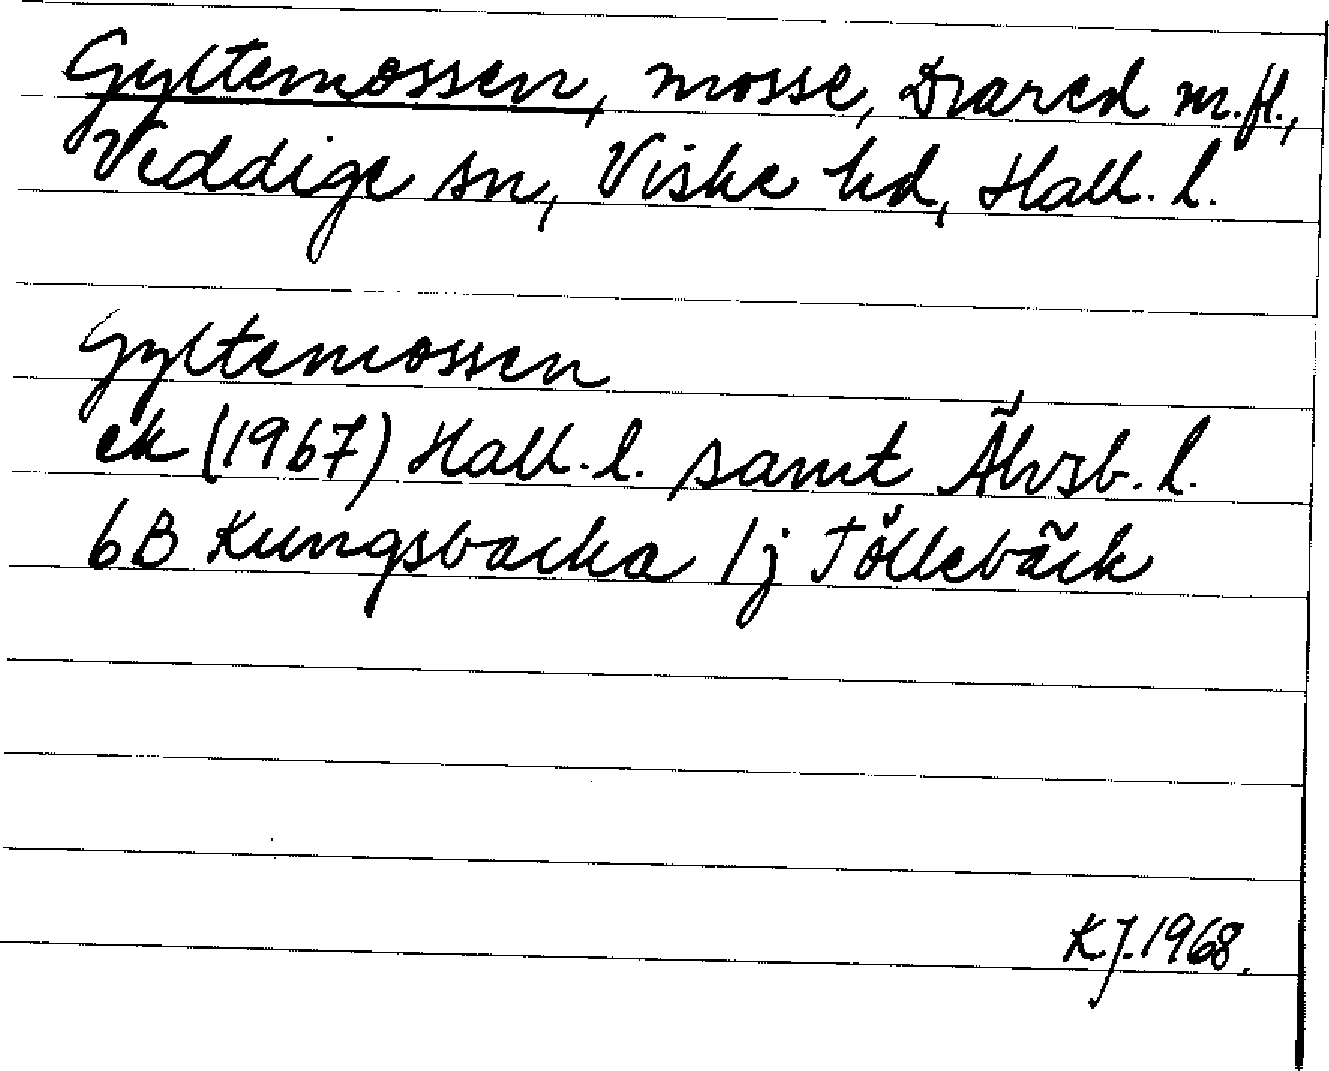 Gyltemossen, mosse, Drared m.fl.,
Veddige sn, Viske hd, Hall. l.
Gyltemossen
ek (1967) Hall. l. samt Älvsb. l.
6B Kungsbacka 1j Töllebäck
KJ. 1968.